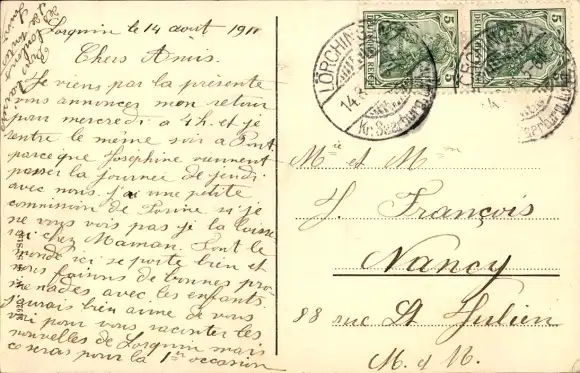 Lorquin le 14 août 1911
Chers Amis.
Je viens par la présente
vous annoncer mon retour
pour mercredi a 4 h. et je
rentre le même soir a Pont
parce que Joséphine viennent
passer la journée de jeudi
avec nous. j'ai une petite
commission de si je
ne vous vois pas je la laisse
rai chez Maman. Tont le
monde ici se porte bien et
nous faisons de bonnes pro
menades avec les enfants
j'aurais bien aimé de vous
voir pour vous raconter les
nouvelles de Lorquin mais
ce sera pour la 1ère occasion
LÖRCHINGEN
14.8.
Kr. Saarburg
DEUTSCHES REICH
5
5
DEUTSCHES REICH
5
5
Mr et Mme
J. François
Nancy
88 rue St Julien
M. et M.